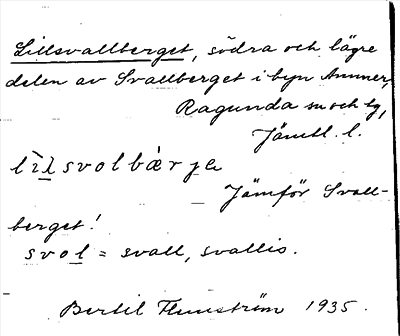 Lillsvallberget, södra och lägre
delen av Svallberget i byn Ammer,
Ragunda sn och tg,
Jämtl. l.
lìlsvolbàrje
Jämför Svall-
berget!
svol = svall, svallis.
Bertil Flemström 1935.